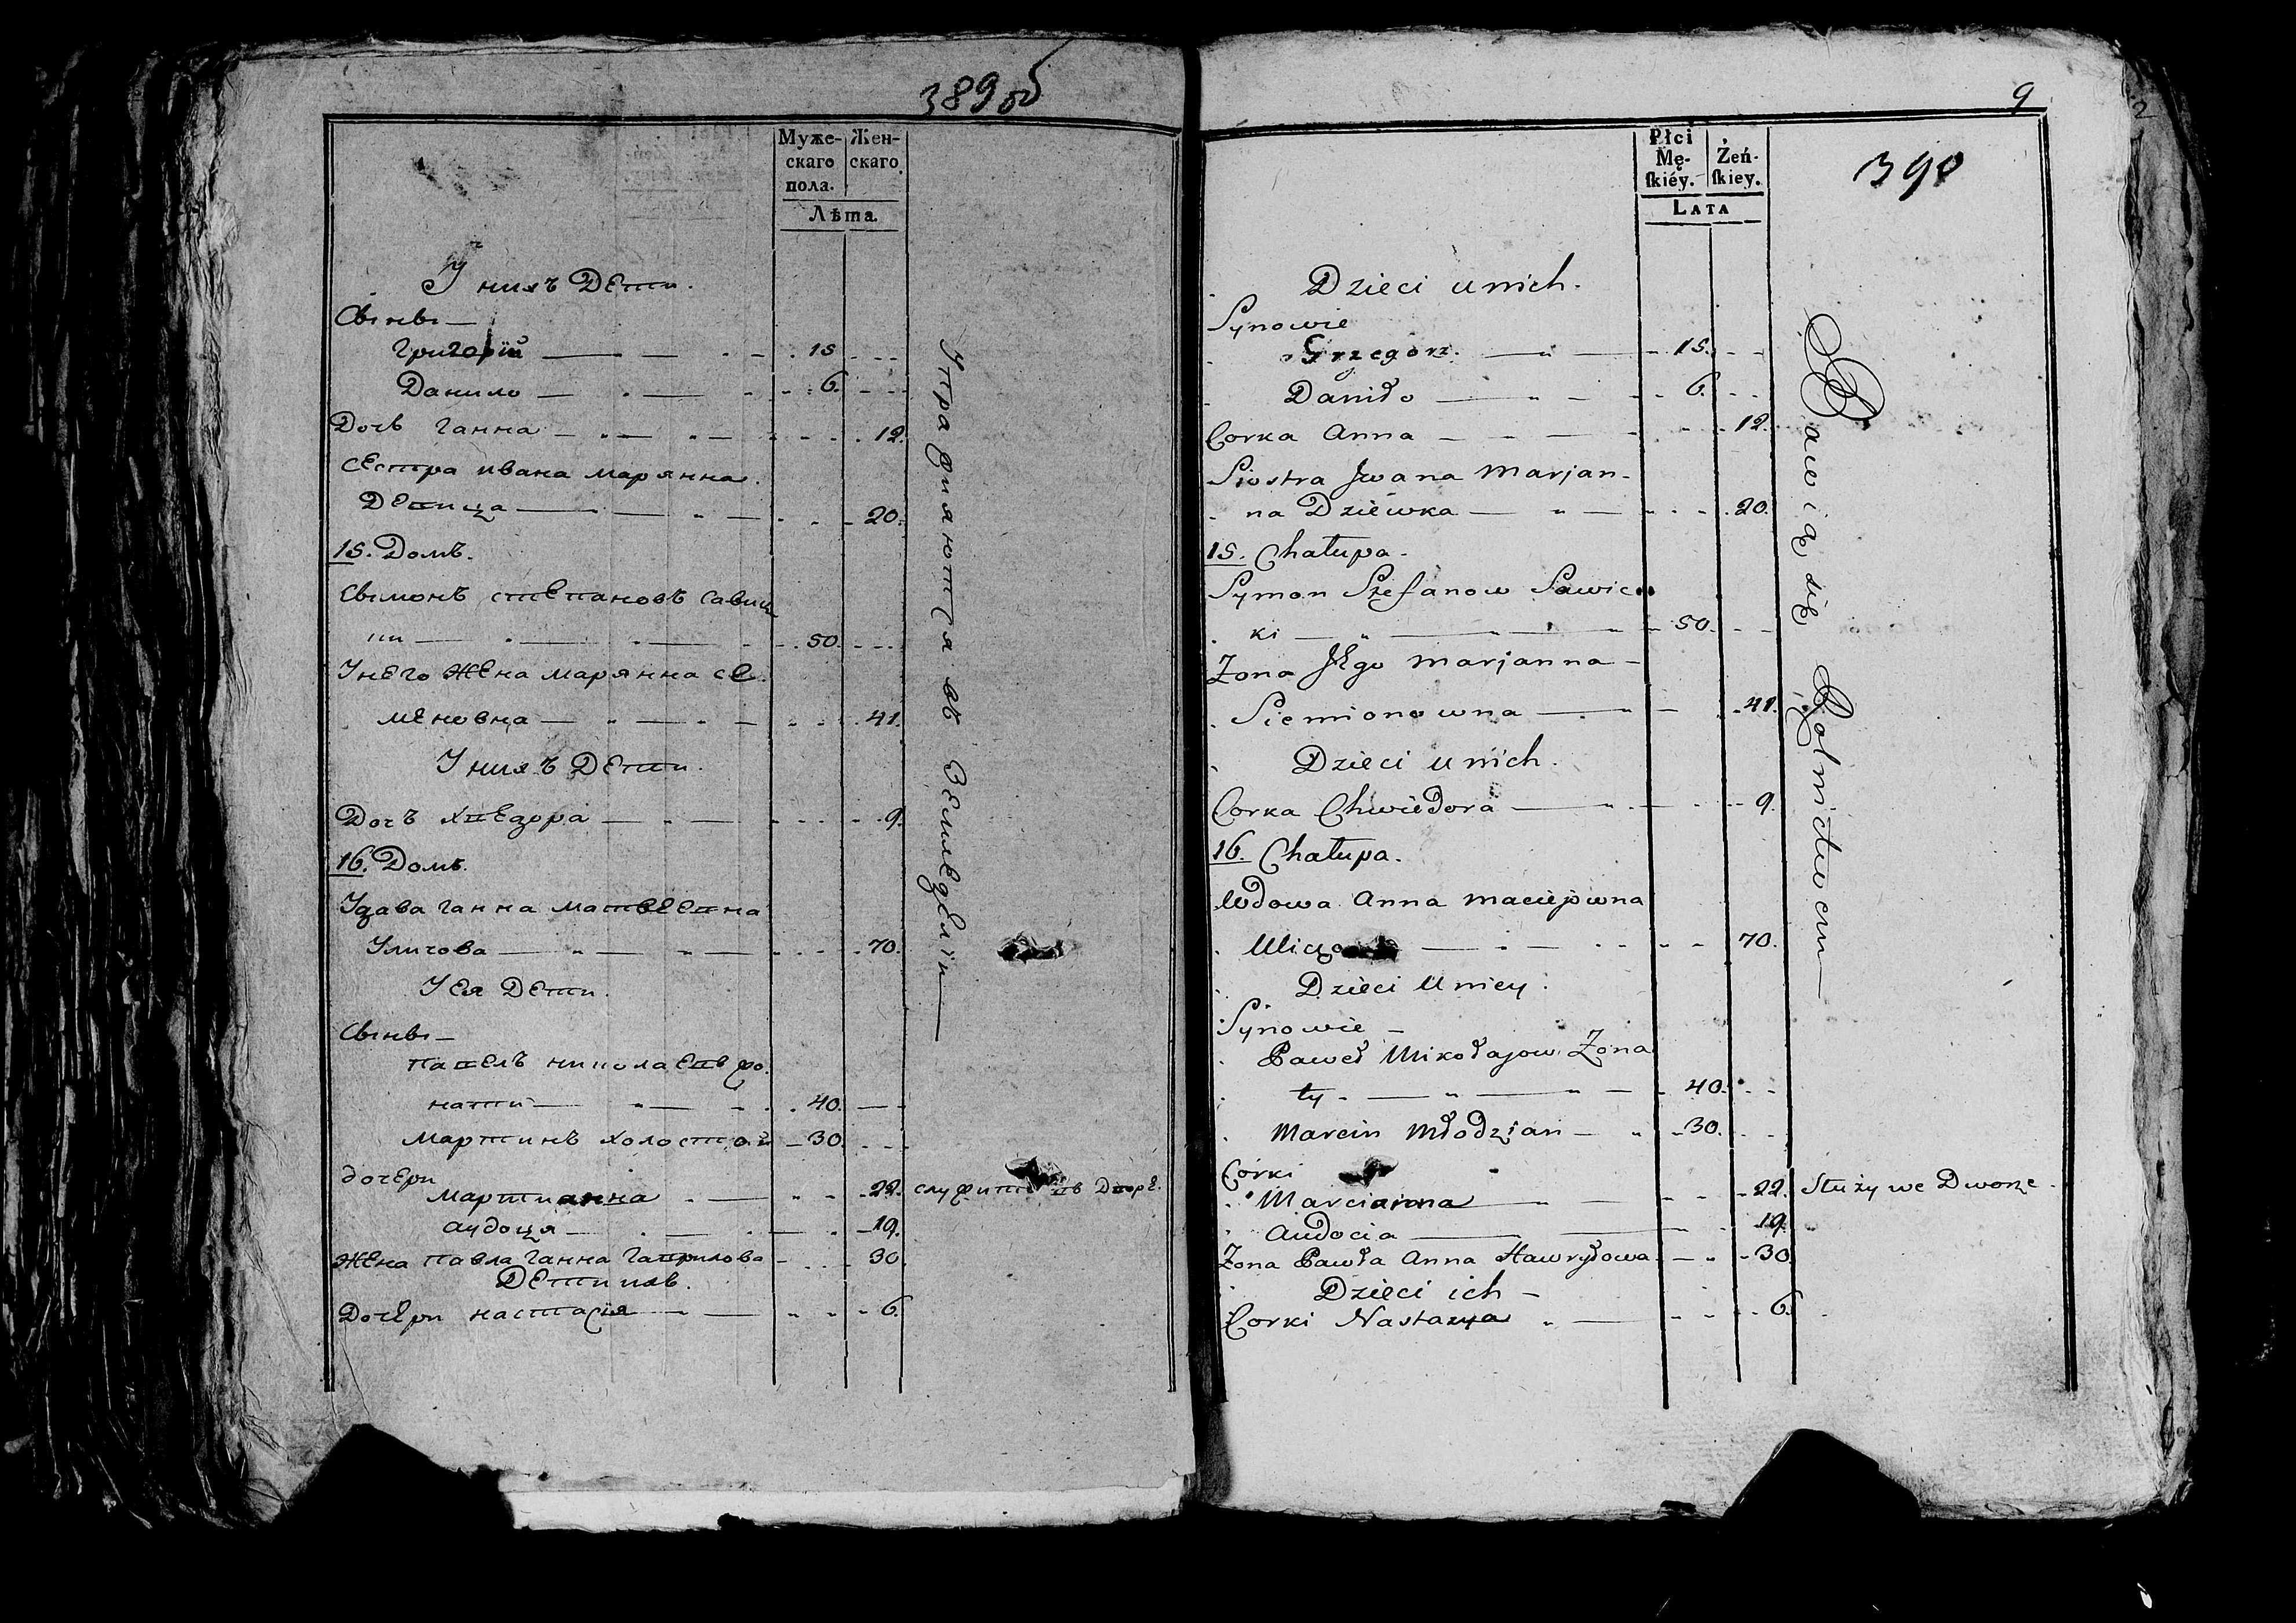 389 об
Муже-
скаго
пола.
Жен-
скаго
Лѣта.
У нихъ Дети.
Сыны —
Григорій — 15
Данило — 6.
Дочь Ганна — 12.
сестра ивана марянна
Девица — 20.
15. Домъ.
Сымонъ степановъ Савиц
ки — 50.
Унего Жена марянна се
меновна — 41.
У нихъ Дети.
Дочъ хведора — 9.
16. Домъ.
Удава ганна матвеевна
Уличова — 70.
У ея Дети.
Сыны —
павелъ николаевъ жо
нати — 40.
мартинъ холостой — 30.
дочери
мартианна — 22. служитъ въ Дворе.
аудоця — 19.
жена павла ганна гаврилова — 30.
Дети ихъ.
Дочери настасія — 6.
Упражняются въ Земледеліи —
9
390
Płci
Mę-
ſkiéy.
Żeń-
ſkiey.
LATA
Dzieci u nich.
Synowie
Grzegorz. — 15.
Daniło — 6.
Corka Anna — 12.
Siostra Jwana Marjan-
na Dziewka — 20.
15. Chałupa.
Symon Stefanow Sawic
ki — 50.
Zona Jego Marjanna —
Siemionowna — 41.
Dzieci u nich.
Corka Chwiedora — 9.
16. Chałupa.
Wdowa Anna Maciejowna
Ulicz — 70.
Dzieci U niey.
Synowie —
Paweł Mikołajow Zona
ty — 40.
Marcin Młodzian — 30.
Corki
Marcianna — 22. Służy we Dworze.
Audocia — 19.
Zona Pawła Anna Hawryłowa — 30.
Dzieci ich —
Corki Nastazya — 6.
Bawią się Rolnictwem —